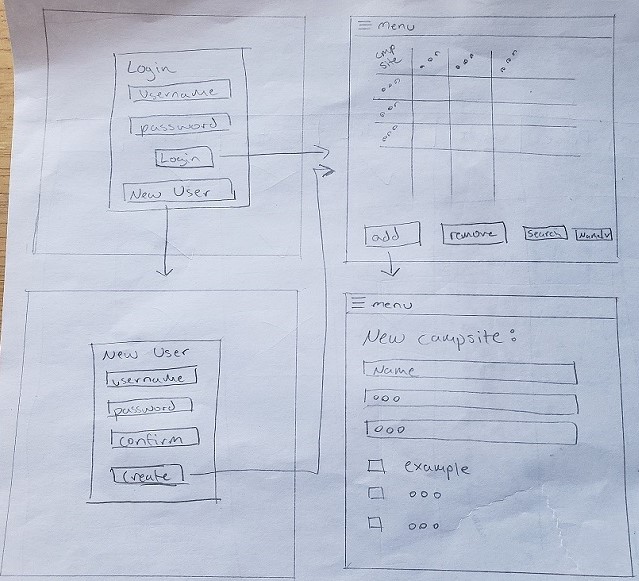 Login
Username
password
Login
New User
menu
cmp
site
add
remove
search
Name
New User
username
password
confirm
create
menu
New campsite:
Name
ooo
ooo
example
ooo
ooo